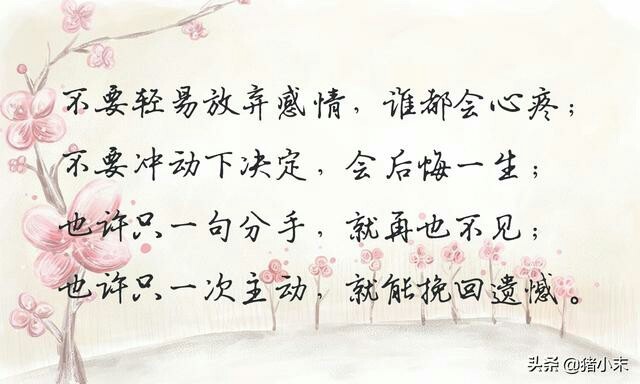 不要轻易放弃感情，谁都会心疼；
不要冲动下决定，会后悔一生；
也许只一句分手，就再也不见；
也许只一次主动，就能挽回遗憾。
头条 @猪小末